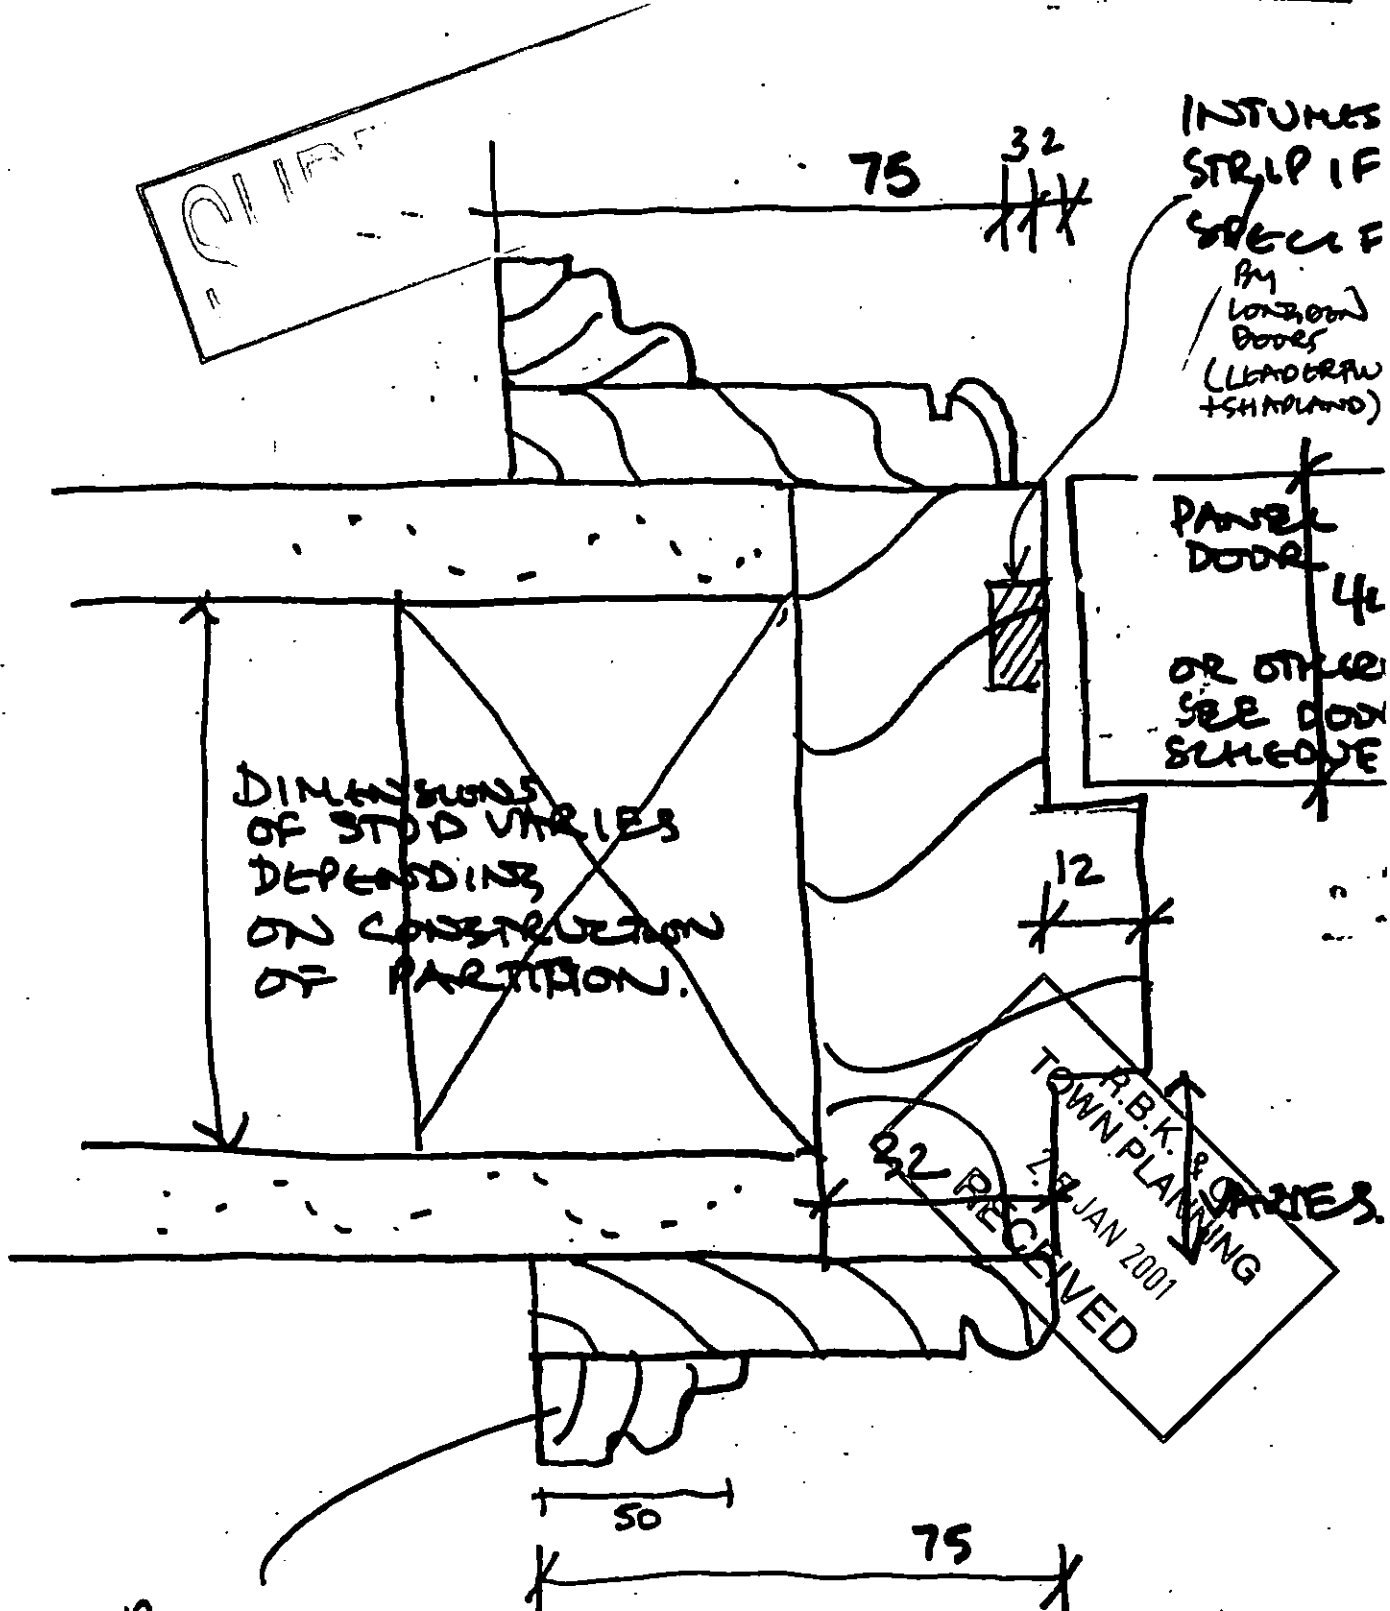 75
32
INTUMES
STRIP IF
SPECIF
BY
LONDON
DOORS
(LEADERFLU
+SHAPLAND)
PANEL
DOOR
OR OTHER
SEE DOO
SCHEDULE
DIMENSIONS
OF STUD VARIES
DEPENDING
ON CONSTRUCTION
OF PARTITION.
12
32
VARIES.
R.B.K. & C.
TOWN PLANNING
JAN 2001
RECEIVED
50
75